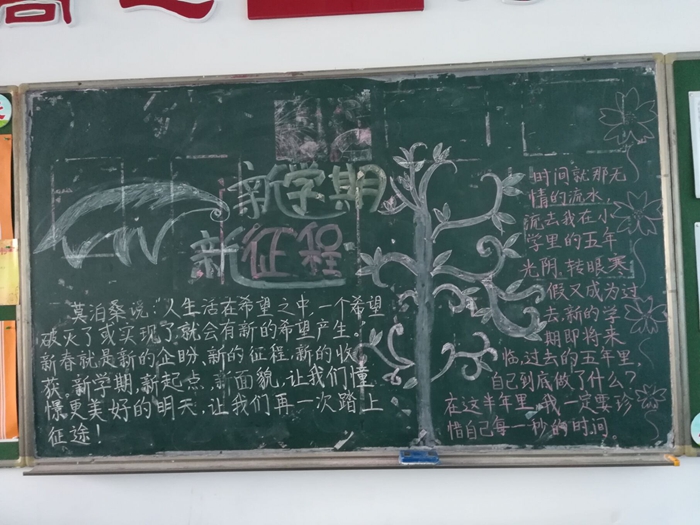 新学期
新征程
莫泊桑说："人生活在希望之中,一个希望
破灭了或实现了,就会有新的希望产生。"
新春就是新的企盼,新的征程,新的收
获。新学期,新起点,新面貌,让我们憧
憬更美好的明天,让我们再一次踏上
征途!
时间就那无
情的流水,
流去我在小
学里的五年
光阴,转眼寒
假又成为过
去,新的学
期即将来
临,过去的五年里,
自己到底做了什么?
在这半年里,我一定要珍
惜自己每一秒的时间